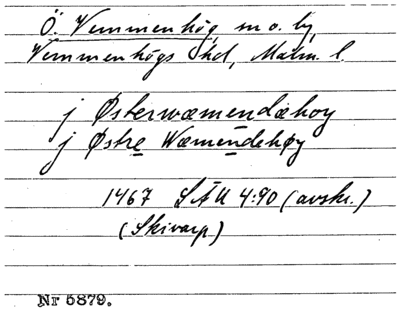 Ö. Vemmenhög sn o. by,
Vemmenhögs hd, Malm. l.
j Østerwæmendæhoy
j Østre Wæmendehøy
1467 SÄU 4:90 (avskr.)
(Skivarp)
Nr 5879.